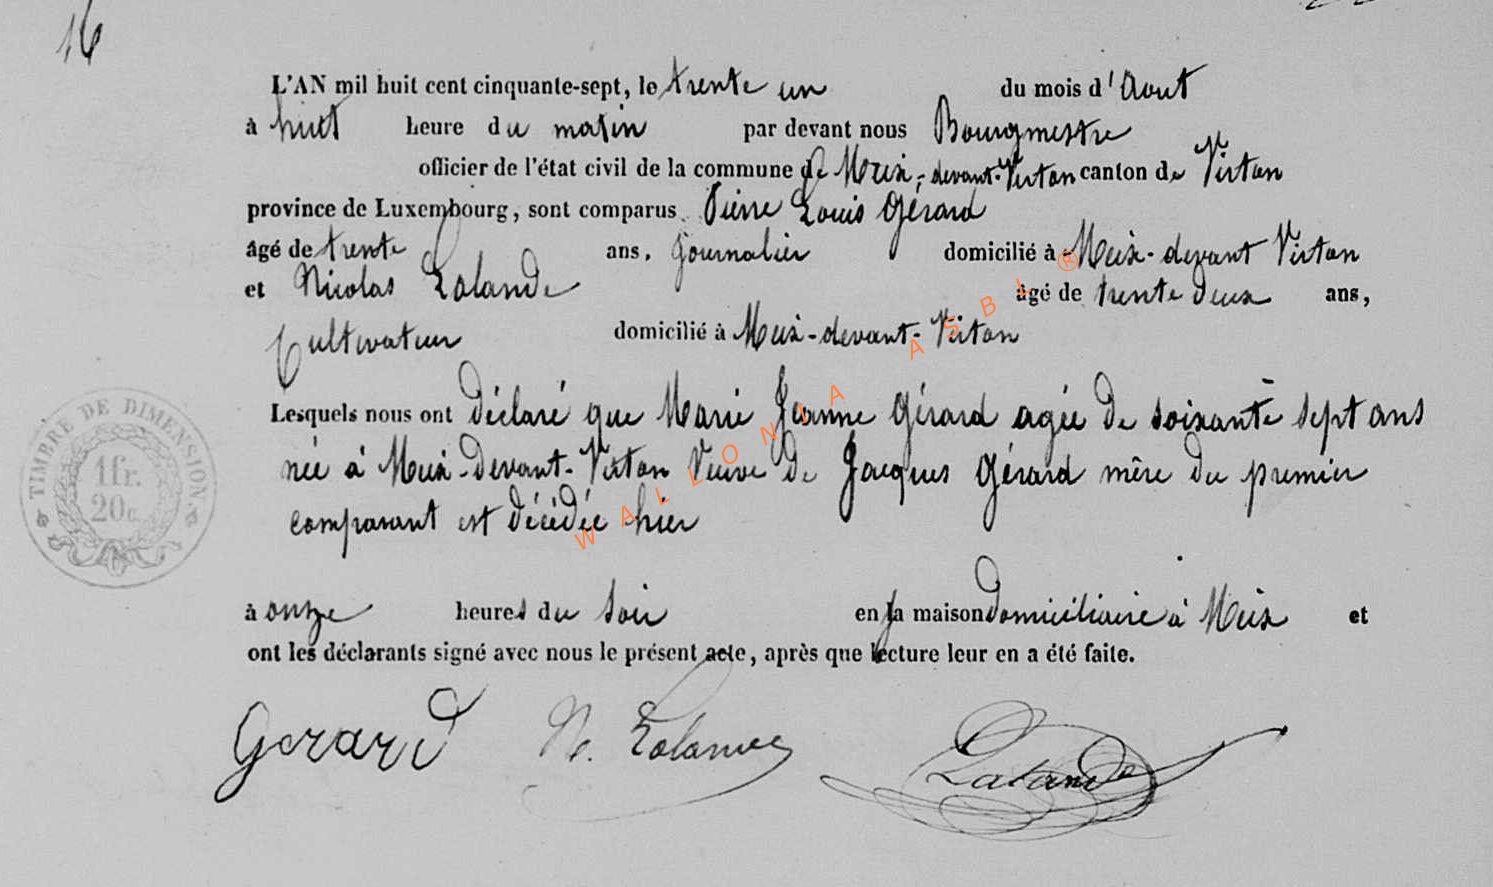 16
L'AN mil huit cent cinquante-sept, le trente un du mois d'Aout
à huit heure du matin par devant nous Bourgmestre
officier de l'état civil de la commune de Meix-devant-Virton canton de Virton
province de Luxembourg, sont comparus Pierre Louis Gérard
âgé de trente ans, journalier domicilié à Meix-devant Virton
et Nicolas Lalande âgé de trente deux ans,
Cultivateur domicilié à Meix-devant-Virton
Lesquels nous ont déclaré que Marie Jeanne Gérard agée de soixante sept ans
née à Meix-devant-Virton Veuve de Jacques Gérard mère du premier
comparant est décédée hier
à onze heures du soir en sa maison domiciliaire à Meix et
ont les déclarants signé avec nous le présent acte, après que lecture leur en a été faite.
Gerard N. Lalande Lalande
TIMBRE DE DIMENSION
1fr.
20c.
WALLONIA ASBL ®